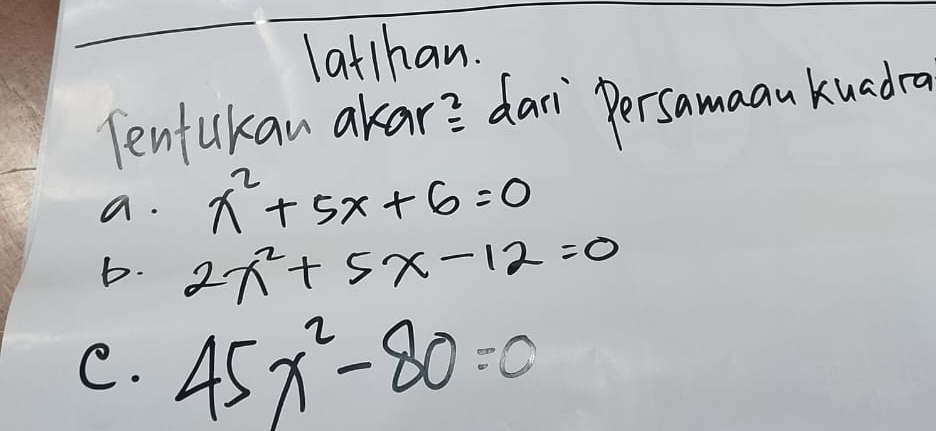 latihan.
Tentukan akar² dari Persamaan kuadra
a. x² + 5x + 6 = 0
b. 2x² + 5x - 12 = 0
c. 45x² - 80 = 0